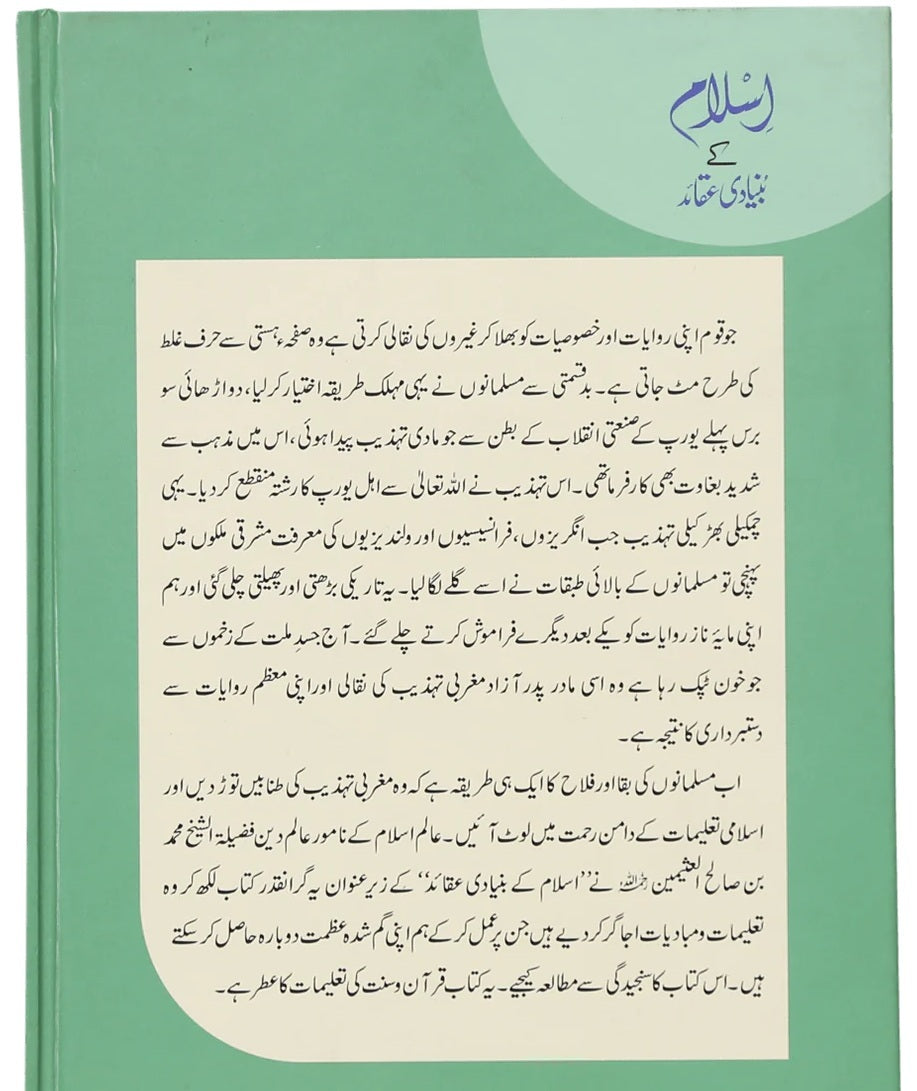 اسلام
کے
بنیادی عقائد
جو قوم اپنی روایات اور خصوصیات کو بھلا کر غیروں کی نقالی کرتی ہے وہ صفحہ ہستی سے حرف غلط
کی طرح مٹ جاتی ہے۔ بدقسمتی سے مسلمانوں نے یہی مہلک طریقہ اختیار کرلیا، دو اڑھائی سو
برس پہلے یورپ کے صنعتی انقلاب کے بطن سے جو مادی تہذیب پیدا ہوئی، اس میں مذہب سے
شدید بغاوت بھی کارفرما تھی۔ اس تہذیب نے اللہ تعالیٰ سے اہل یورپ کا رشتہ منقطع کر دیا۔ یہی
چمکیلی بھڑکیلی تہذیب جب انگریزوں، فرانسیسیوں اور ولندیزیوں کی معرفت مشرقی ملکوں میں
پہنچی تو مسلمانوں کے بالائی طبقات نے اسے گلے لگا لیا۔ یہ تاریکی بڑھتی اور پھیلتی چلی گئی اور ہم
اپنی مایۂ ناز روایات کو یکے بعد دیگرے فراموش کرتے چلے گئے۔ آج جسدِ ملت کے زخموں سے
جو خون ٹپک رہا ہے وہ اسی مادر پدر آزاد مغربی تہذیب کی نقالی اور اپنی معظم روایات سے
دستبرداری کا نتیجہ ہے۔
اب مسلمانوں کی بقا اور فلاح کا ایک ہی طریقہ ہے کہ وہ مغربی تہذیب کی طنابیں توڑ دیں اور
اسلامی تعلیمات کے دامن رحمت میں لوٹ آئیں۔ عالم اسلام کے نامور عالم دین فضیلۃ الشیخ محمد
بن صالح العثیمین رحمہ اللہ نے ’’اسلام کے بنیادی عقائد‘‘ کے زیر عنوان یہ گرانقدر کتاب لکھ کر وہ
تعلیمات و مبادیات اجاگر کر دیے ہیں جن پر عمل کر کے ہم اپنی گم شدہ عظمت دوبارہ حاصل کر سکتے
ہیں۔ اس کتاب کا سنجیدگی سے مطالعہ کیجیے۔ یہ کتاب قرآن و سنت کی تعلیمات کا عطر ہے۔